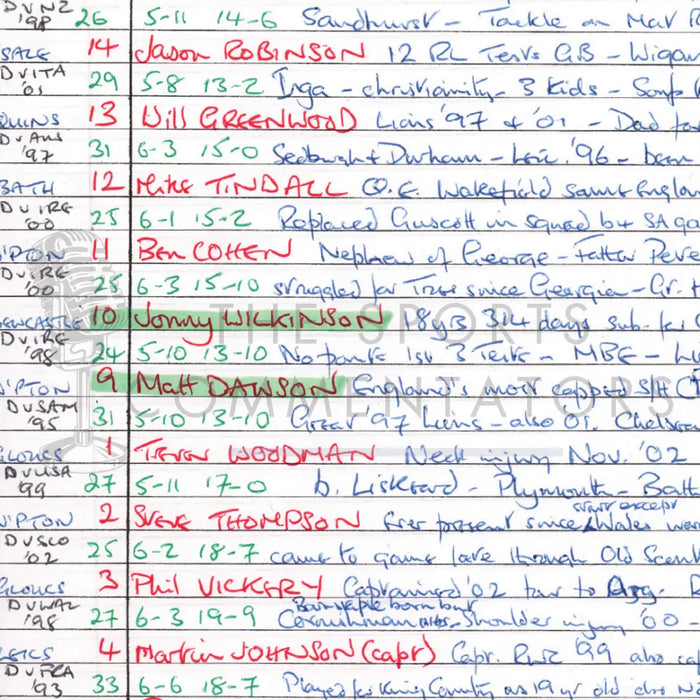 DVNZ '98 26 5-11 14-6 Sandhurst - Tackle on Mat
SALE 14 Jason ROBINSON 12 RL Tests GB - Wigan
DVITA '01 29 5-8 13-2 Inga - christianity - 3 kids - Soup
QUINS 13 Will GREENWOOD Lions '97 & '01 - Dad
DVAUS '97 31 6-3 15-0 Sedburgh & Durham - Leic. '96 - been
BATH 12 Mike TINDALL Q.E. Wakefield same England
DVIRE '00 25 6-1 15-2 Replaced Guscott in squad by SA
N'PTON 11 Ben COHEN Nephew of George - Father Peter
DVIRE '00 25 6-3 15-10 struggled for Tries since Georgia - Gr.
NEWCASTLE 10 Jonny WILKINSON 18 yrs 314 days sub. for
DVIRE '98 24 5-10 13-10 No points 1st 3 Tests - MBE -
N'PTON 9 Matt DAWSON England's most capped S/H
DVSAM '95 31 5-10 13-10 Great '97 Lions - also 01. Chelsea
GLOUCS 1 Trevor WOODMAN Neck injury Nov. '02
DVUSA '99 27 5-11 17-0 b. Liskeard - Plymouth - Bath
N'PTON 2 Steve THOMPSON Ever present since start except Wales
DVSCO '02 25 6-2 18-7 came to game late through Old
GLOUCS 3 Phil VICKERY Captained '02 tour to Arg.
DVWAL '98 27 6-3 19-9 Barnstaple born but Cornishman - Shoulder injury '00 -
LEICS 4 Martin JOHNSON (capt) Capt. RWC '99 also
DVFRA '93 33 6-6 18-7 Played for King Country as 19 yr old also
THE SPORTS COMMENTATORS